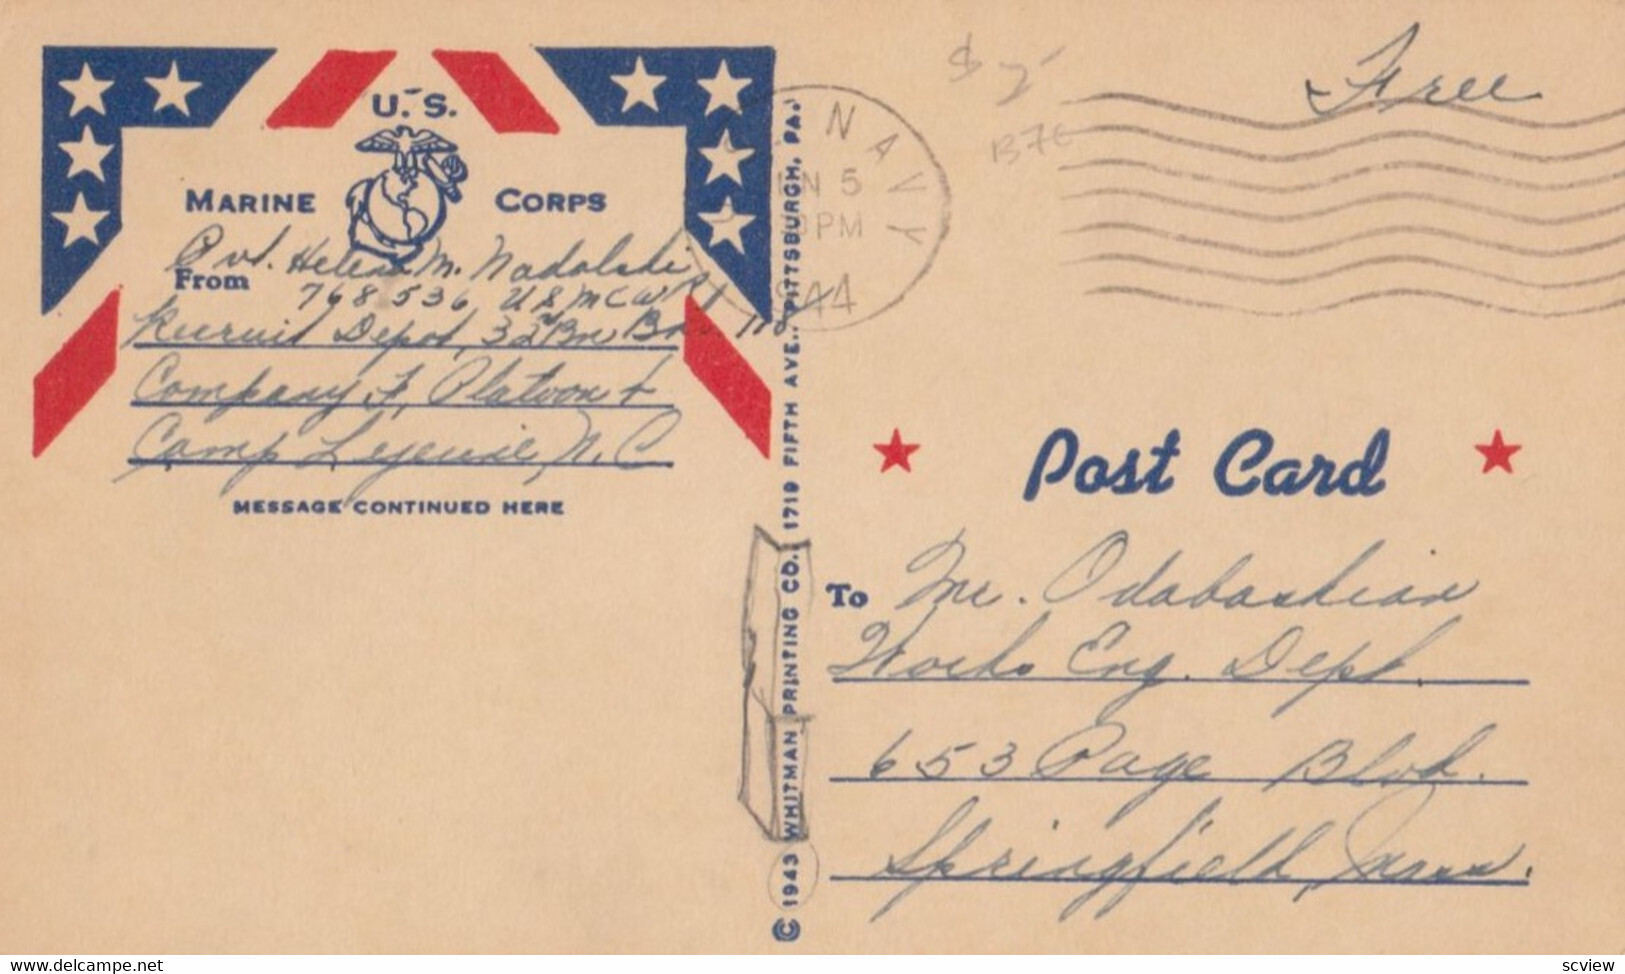 U.S.
MARINE CORPS
Pvt. Helen M. Nadolski
From
768536 USMCWR
Recruit Depot, 32nd Bn
Company F, Platoon
Camp Lejeune, N.C
MESSAGE CONTINUED HERE
© 1943 WHITMAN PRINTING CO., 1719 FIFTH AVE., PITTSBURGH, PA.
NAVY
5
PM
Free
B7E
Post Card
To Mr. Odabashian
Works Eng. Dept.
653 Page Blvd.
Springfield, Mass.
www.delcampe.net
scview